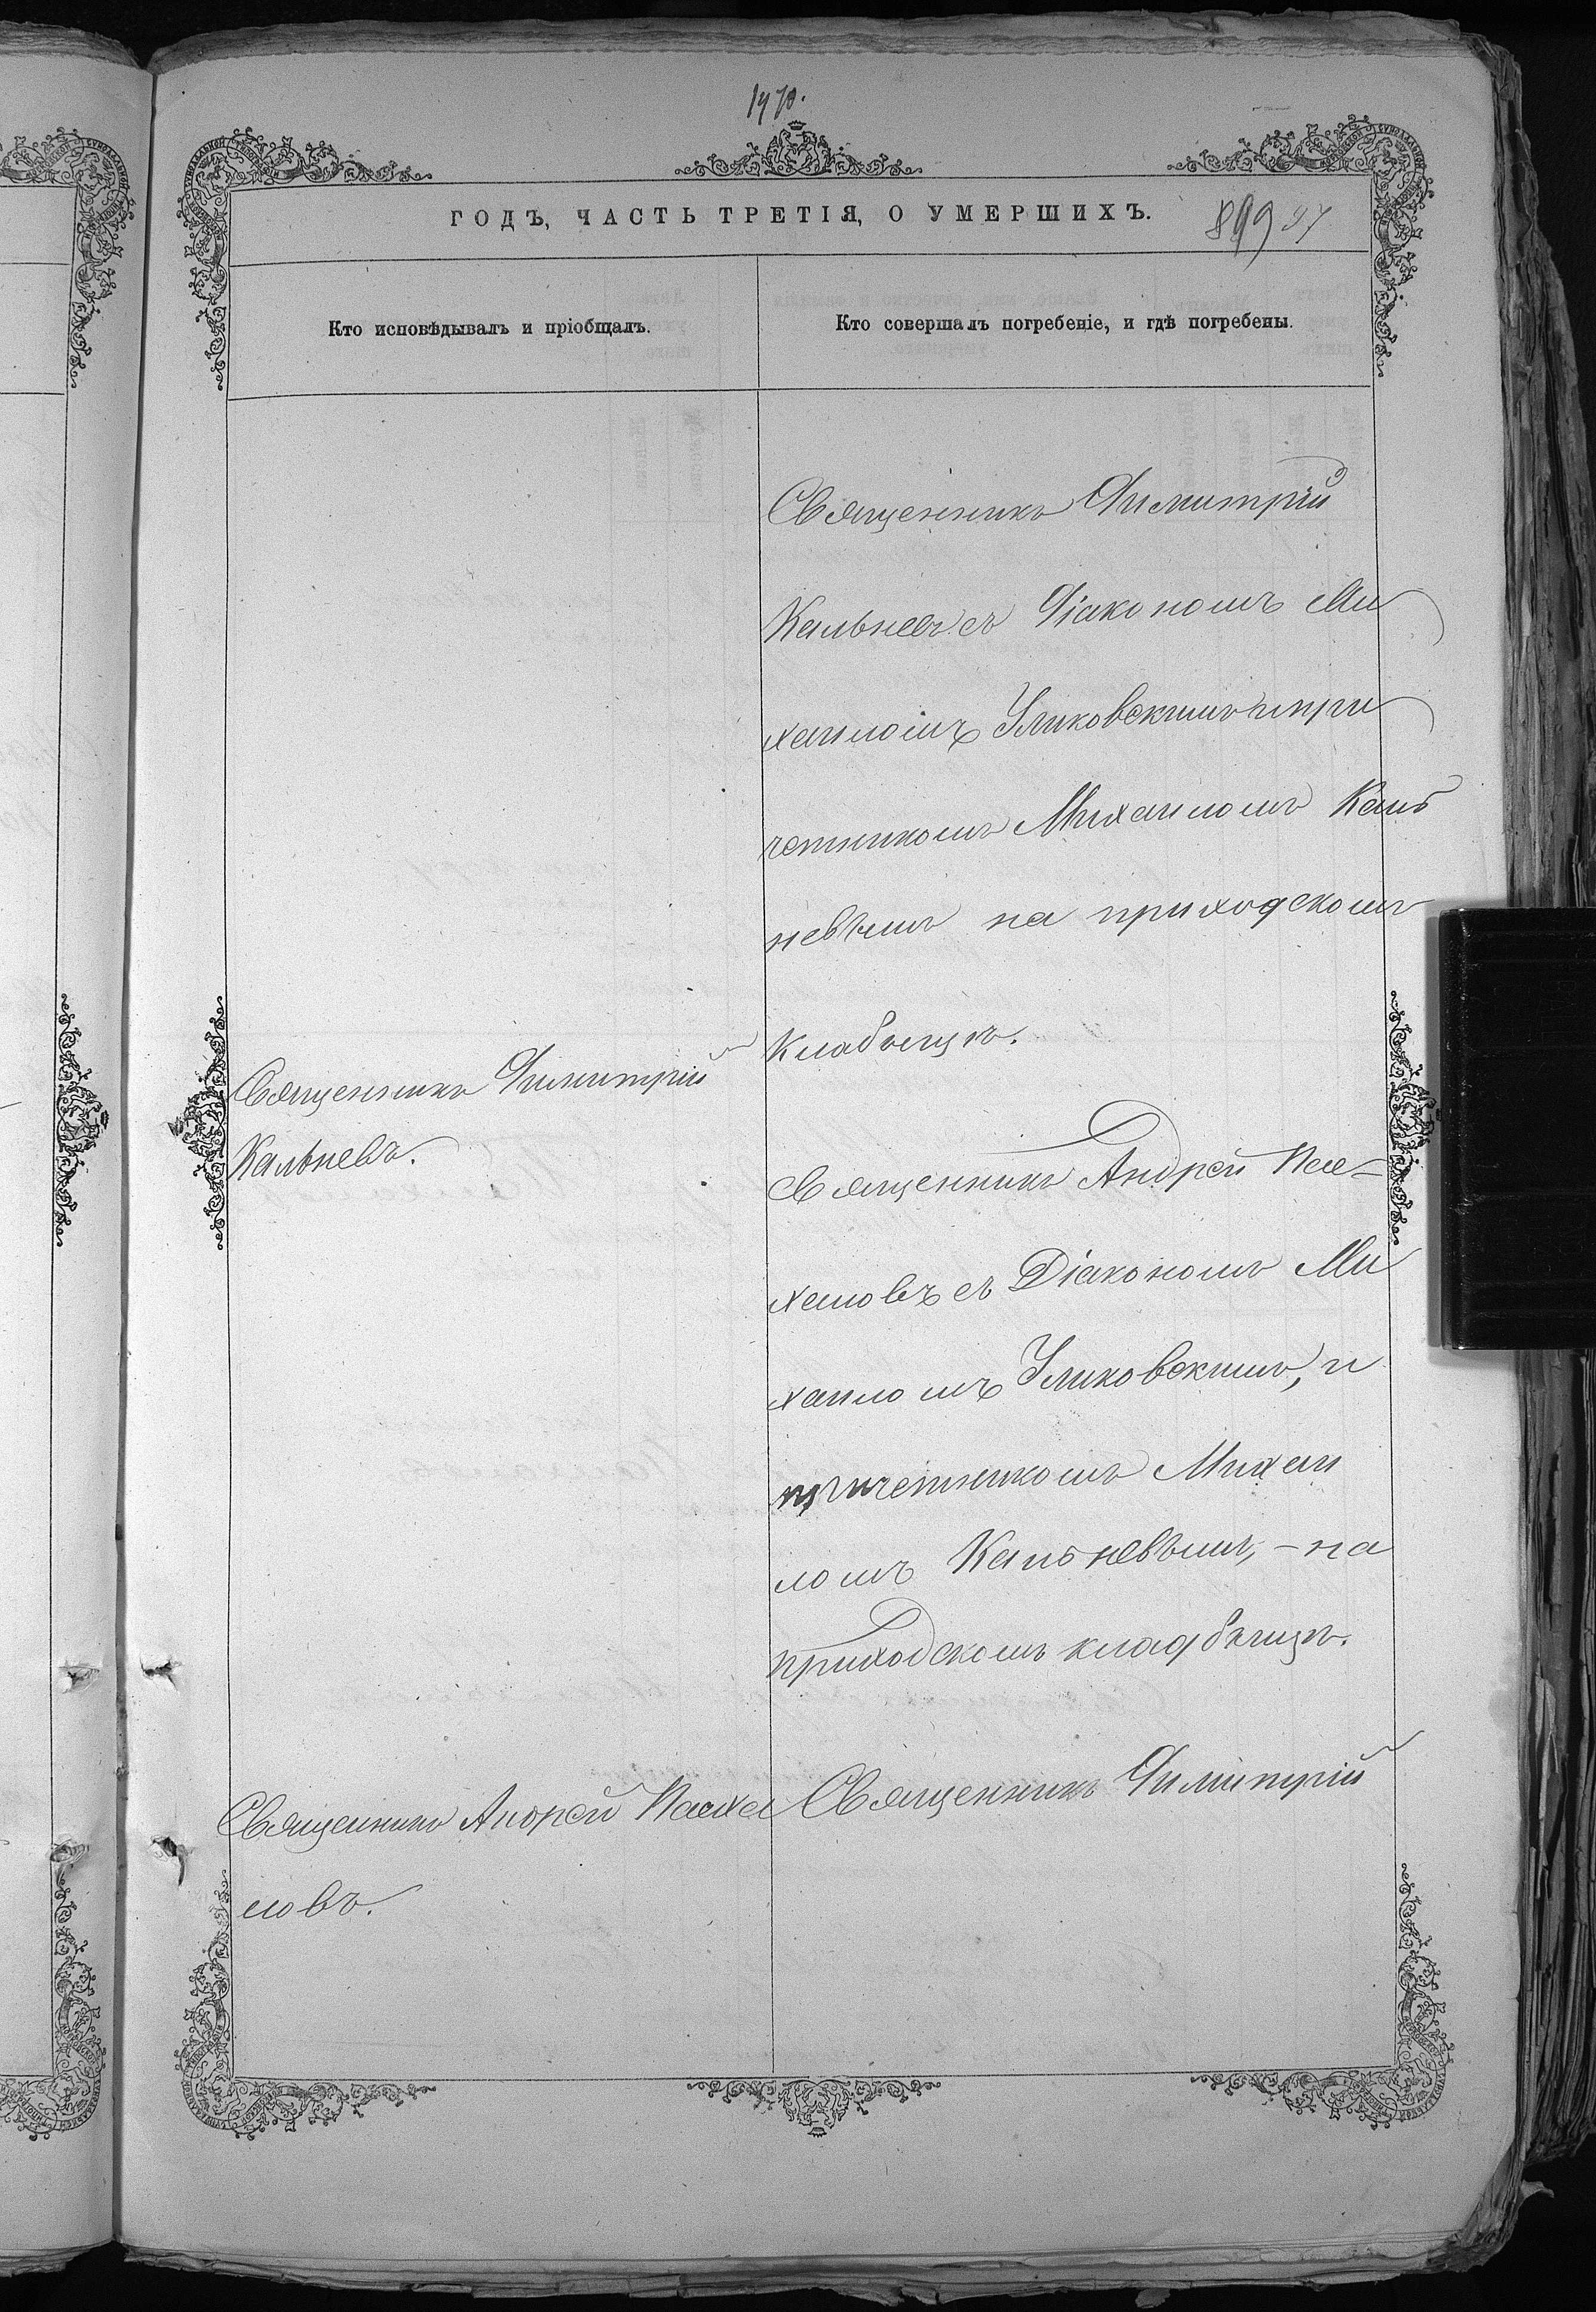 ГОДЪ, ЧАСТЬ ТРЕТІЯ, О УМЕРШИХЪ.
899 97
Кто исповѣдывалъ и пріобщалъ.
Кто совершалъ погребеніе, и гдѣ погребены.
Священникъ Димитрій
Кальневъ съ Діакономъ Ми
хаиломъ Уликовскимъ и при
четникомъ Михаиломъ Каль
невымъ на приходскомъ
кладбищѣ.
Священникъ Димитрій
Кальневъ.
Священникъ Андрей Пас-
халовъ съ Діакономъ Ми
хаиломъ Уликовскимъ, и
причетникомъ Михаи
ломъ Кальневымъ, - на
приходскомъ кладбищѣ.
Священникъ Андрей Пасха
ловъ.
Священникъ Димитрій